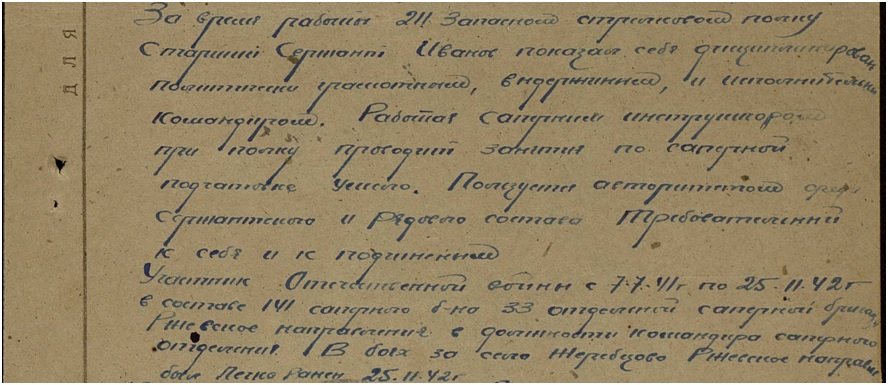 ДЛЯ
За время работы 211 Запасном стрелковом полку
Старший Сержант Иванов показал себя дисциплинирован
политически грамотным, выдержинным, и исполнительным
командиром. Работая саперным инструктором
при полку проходил занятия по саперной
подготовке умело. Пользуется авторитетом среди
Сержантского и рядового состава Требовательный
к себе и к подчиненным
Участник Отечественной войны с 7.7.41г по 25.11.42г
в составе 141 саперного б-на 33 отделной саперной бригады
Ржевское направления в должности командира саперного
отделения. В боях за село Жеребцово Ржевское направле
был Легко Ранен 25.11.42г